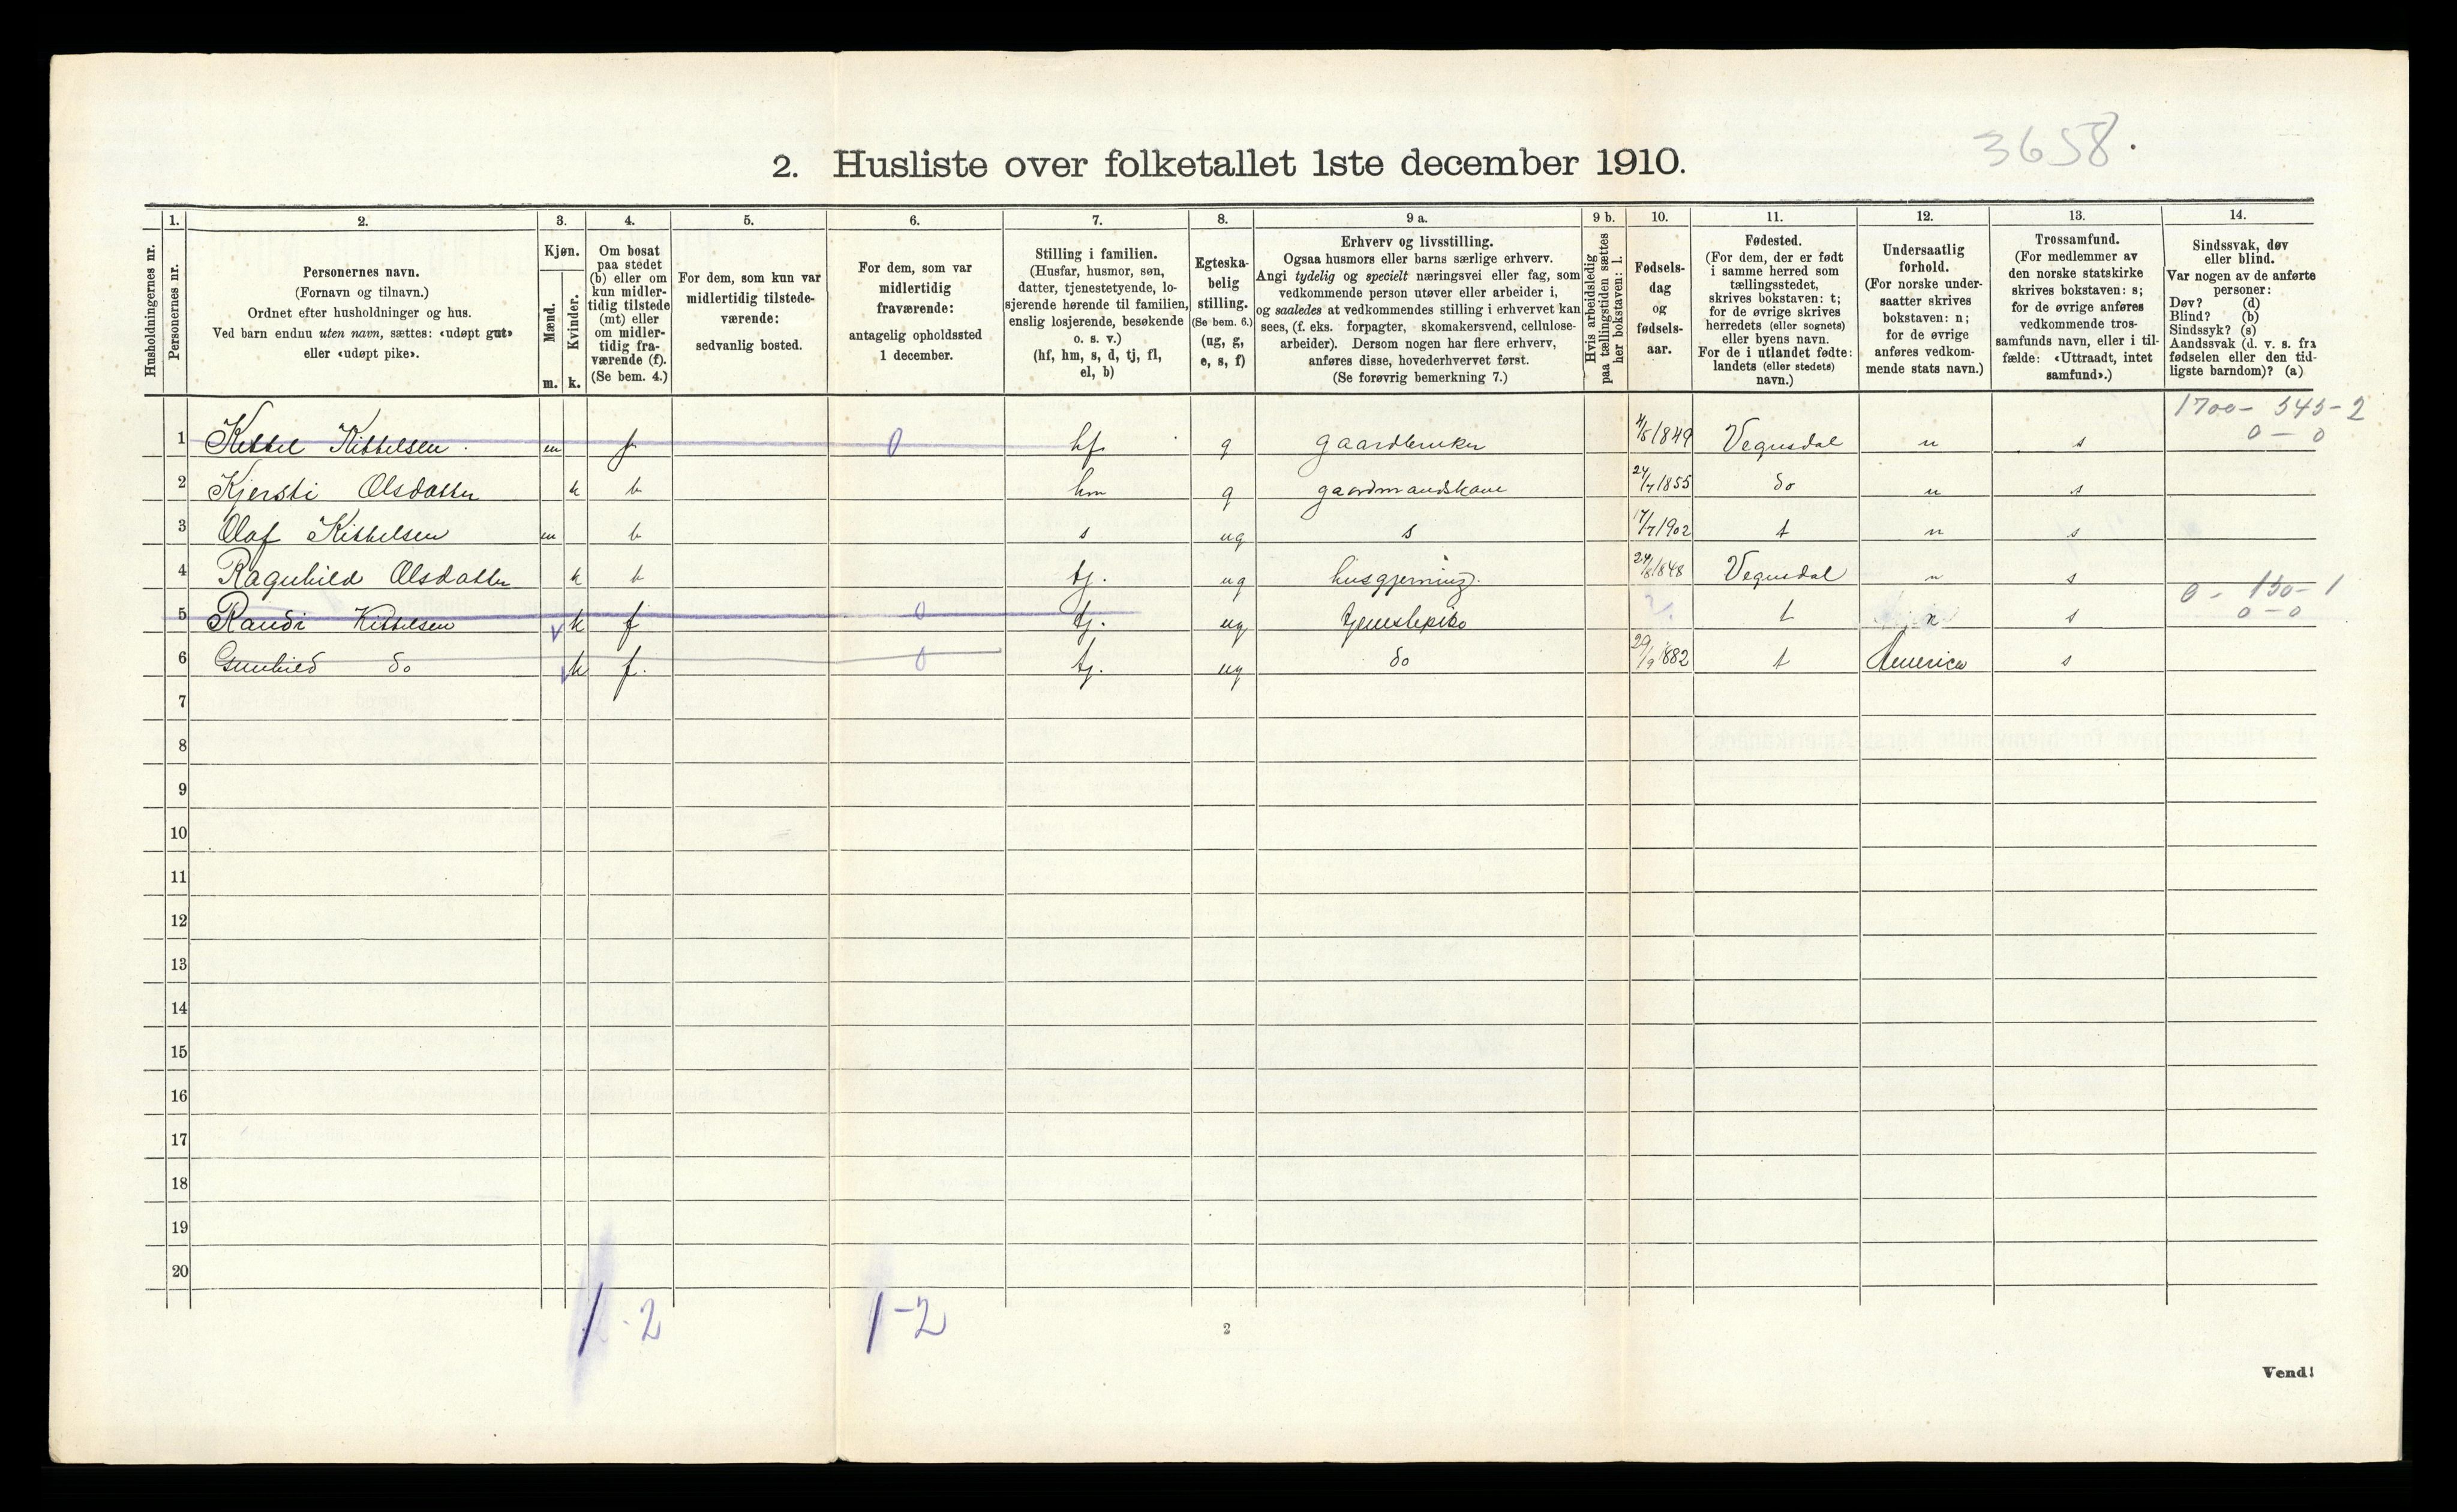 3658.
2. Husliste over folketallet 1ste december 1910.
Husholdningernes nr.
1.
Personernes nr.
2.
Personernes navn.
(Fornavn og tilnavn.)
Ordnet efter husholdninger og hus.
Ved barn endnu uten navn, sættes: «udøpt gut»
eller «udøpt pike».
3.
Kjøn.
Mænd.
m.
Kvinder.
k.
4.
Om bosat
paa stedet
(b) eller om
kun midler-
tidig tilstede
(mt) eller
om midler-
tidig fra-
værende (f).
(Se bem. 4.)
5.
For dem, som kun var
midlertidig tilstede-
værende:
sedvanlig bosted.
6.
For dem, som var
midlertidig
fraværende:
antagelig opholdssted
1 december.
7.
Stilling i familien.
(Husfar, husmor, søn,
datter, tjenestetyende, lo-
sjerende hørende til familien,
enslig losjerende, besøkende
o. s. v.)
(hf, hm, s, d, tj, fl,
el, b)
8.
Egteska-
belig
stilling.
(Se bem. 6.)
(ug, g,
e, s, f)
9 a.
Erhverv og livsstilling.
Ogsaa husmors eller barns særlige erhverv.
Angi tydelig og specielt næringsvei eller fag, som
vedkommende person utøver eller arbeider i,
og saaledes at vedkommendes stilling i erhvervet kan
sees, (f. eks. forpagter, skomakersvend, cellulose-
arbeider). Dersom nogen har flere erhverv,
anføres disse, hovederhvervet først.
(Se forøvrig bemerkning 7.)
9 b.
Hvis arbeidsledig
paa tællingstiden sættes
her bokstaven: l.
10.
Fødsels-
dag
og
fødsels-
aar.
11.
Fødested.
(For dem, der er født
i samme herred som
tællingsstedet,
skrives bokstaven: t;
for de øvrige skrives
herredets (eller sognets)
eller byens navn.
For de i utlandet fødte:
landets (eller stedets)
navn.)
12.
Undersaatlig
forhold.
(For norske under-
saatter skrives
bokstaven: n;
for de øvrige
anføres vedkom-
mende stats navn.)
13.
Trossamfund.
(For medlemmer av
den norske statskirke
skrives bokstaven: s;
for de øvrige anføres
vedkommende tros-
samfunds navn, eller i til-
fælde: «Uttraadt, intet
samfund».)
14.
Sindssvak, døv
eller blind.
Var nogen av de anførte
personer:
Døv? (d)
Blind? (b)
Sindssyk? (s)
Aandssvak (d. v. s. fra
fødselen eller den tid-
ligste barndom)? (a)
1700- 545-2
0 - 0
1 Kittel Kittelsen m f 0 hf. g gaardbruker 1849 Vegusdal n s
2 Kjersti Olsdatter k b hm g gaardmandskone 24/7 1855 do n s
3 Olaf Kittelsen m b s ug s 17/7 1902 t n s
4 Ragnhild Olsdatter k b tj. ug husgjerning. 24/8 1848 Vegusdal n s
0 - 150-1
0-0
5 Randi Kittelsen k f 0 tj. ug tjenestepike t n s
6 Gunhild do k f. 0 tj. ug do 29/9 1882 t America s
7
8
9
10
11
12
13
14
15
16
17
18
19
20
1 - 2 1-2
2
Vend!